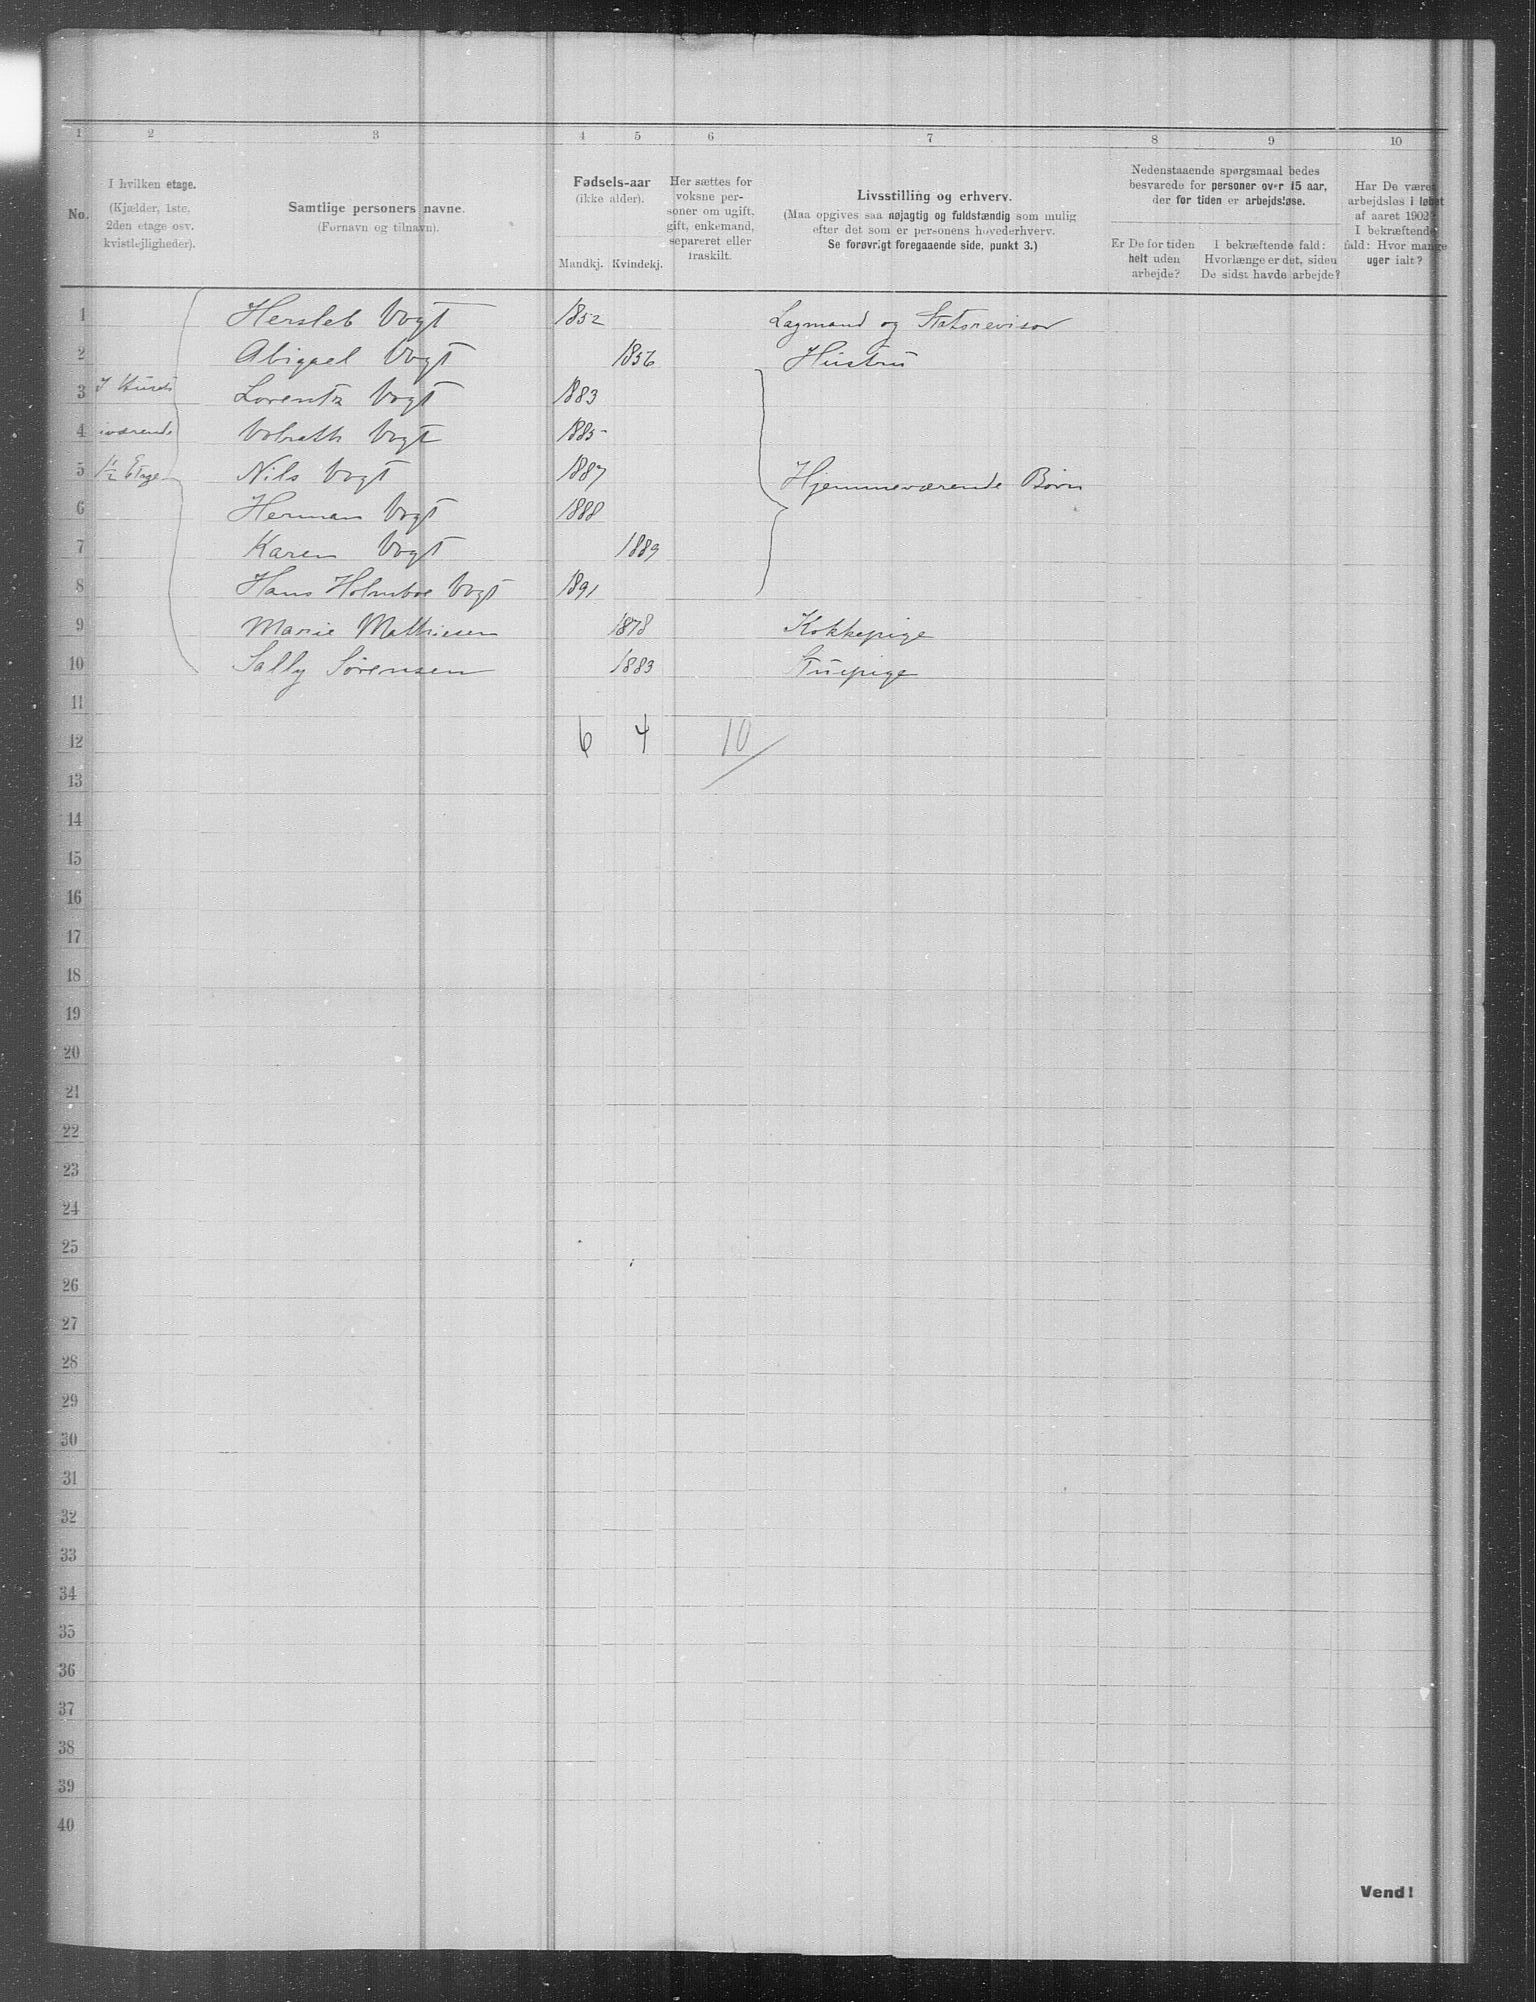 1 2 3 4 5 6 7 8 9 10
No.
I hvilken etage.
(Kjælder, 1ste,
2den etage osv.
kvistlejligheder).
Samtlige personers navne.
(Fornavn og tilnavn).
Fødsels-aar
(ikke alder).
Mandkj. Kvindekj.
Her sættes for
voksne per-
soner om ugift,
gift, enkemand,
separeret eller
fraskilt.
Livsstilling og erhverv.
(Maa opgives saa nøjagtig og fuldstændig som mulig
efter det som er personens hovederhverv.
Se forøvrigt foregaaende side, punkt 3.)
Nedenstaaende spørgsmaal bedes
besvarede for personer over 15 aar,
der for tiden er arbejdsløse.
Er De for tiden
helt uden
arbejde?
I bekræftende fald:
Hvorlænge er det, siden
De sidst havde arbejde?
Har De været
arbejdsløs i løbet
af aaret 1902?
I bekræftende
fald: Hvor mange
uger ialt?
1 Hersleb Vogt 1852 Lagmand og Statsrevisor
2 Abigael Vogt 1856 Hustru
3 I Husets Lorentz Vogt 1883
4 værende Volrath Vogt 1885
5 Etage Nils Vogt 1887 Hjemmeværende Børn
6 Herman Vogt 1888
7 Karen Vogt 1889
8 Hans Holmboe Vogt 1891
9 Marie Mathiesen 1878 Kokkepige
10 Sally Sørensen 1883 Stuepige
11
12 6 4 10
13
14
15
16
17
18
19
20
21
22
23
24
25
26
27
28
29
30
31
32
33
34
35
36
37
38
39
40
Vend!